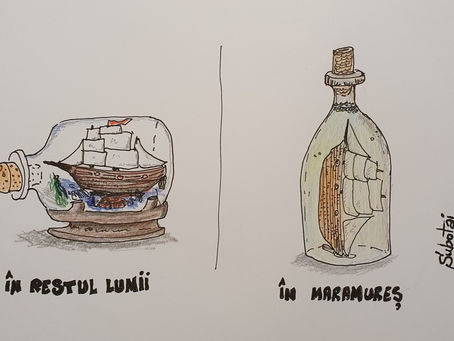 ÎN RESTUL LUMII
ÎN MARAMUREȘ
Subotai